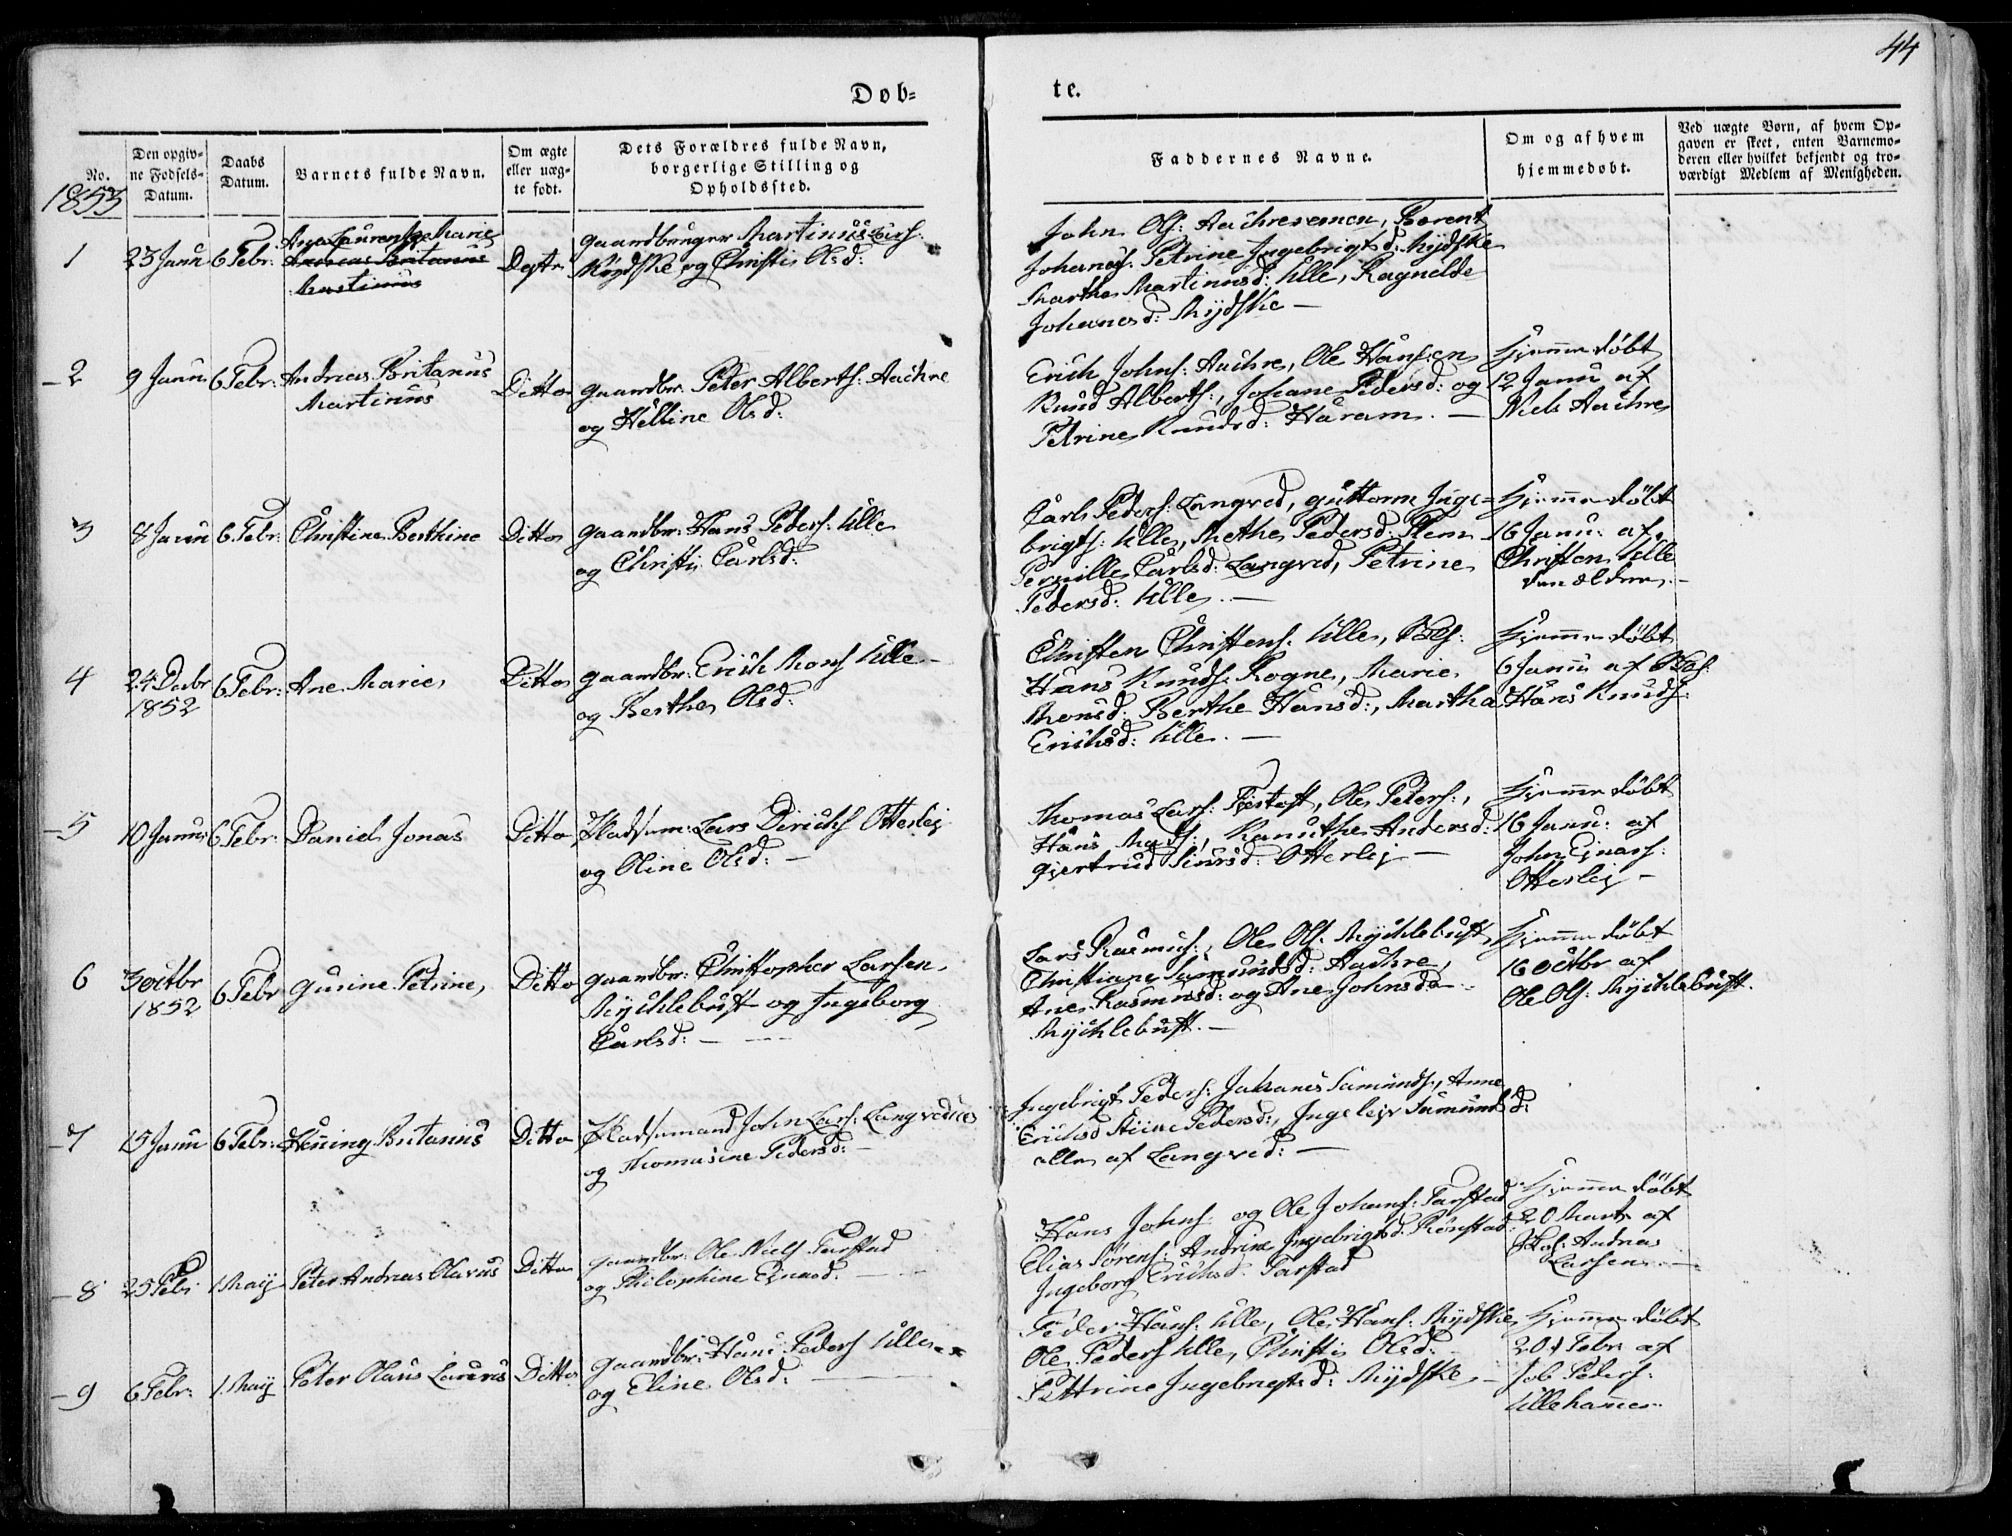 44
Døb-
te.
No.
Den opgiv-
ne Fødsels-
Datum.
Daabs
Datum.
Barnets fulde Navn.
Om ægte
eller uæg-
te født.
Dets Forældres fulde Navn,
borgerlige Stilling og
Opholdssted.
Faddernes Navne.
Om og af hvem
hjemmedøbt.
Ved uægte Børn, af hvem Op-
gaven er skeet, enten Barnemo-
deren eller hvilket bekjendt og tro-
værdigt Medlem af Menigheden.
1853
1
23 Janu
6 Febr:
Ane Laurense Marie
Andreas Britanus
Martinus
Egte
Gaardbruger Martinus Lars:
Mydske og Christi Olsd:
John Ols: Aachrevemen, Berent
Johans: Petrine Ingebrigtsd: Mydske
Marthe Martinusd: Ulle, Ragnelde
Johanesd: Mydske —
2
9 Janu
6 Febr:
Andreas Britanus
Martinus
Ditto
Gaardbr: Peter Alberts: Aachre
og Heline Olsd:
Erich Johns: Aachre, Ole Hansen
Knud Alberts:, Johane Pedersd: og
Petrine Knudsd: Haram. —
Hjemmedøbt
12 Janu af
Niels Aachre
3
8 Janu
6 Febr:
Christine Berthine
Ditto
Gaardbr: Hans Peders: Ulle
og Christi Carlsd:
Carl Peders: Langved, Guttorm Inge-
brigts: Ulle, Methe Pedersd: Flem
Pernille Carlsd: Langved, Petrine
Pedersd: Ulle. —
Hjemmedøbt
16 Janu: af
Christen Ulle
den ældre. —
4
24 Decbr
1852
6 Febr:
Ane Marie
Ditto
Gaardbr: Erich Mons: Ulle
og Berthe Olsd:
Christen Christens: Ulle,
Hans Knuds: Rogne, Marie
Monsd: Berthe Hansd:, Martha
Erichsd: Ulle. —
Hjemmedøbt
6 Janu af
Hans Knuds:
5
10 Janu:
6 Febr:
Daniel Jonas
Ditto
Pladsm: Lars Dirichs Otterlej
og Oline Olsd: —
Thomas Lars: Fjestoft, Ole Peters:,
Hans Mads:, Kanuthe Andersd:
Gjertrud Siursd: Otterlej —
Hjemmedøbt
16 Janu: af
John Ejnars:
Otterlej —
6
3 Octbr
1852
6 Febr
Gurine Petrine
Ditto
Gaardbr: Christopher Larsen
Mychlebust og Ingeborg
Carlsd: —
Lars Rasmus:, Ole Ols: Mychlebust
Christiane Amundsd: Aachre,
Ane Rasmusd: og Ane Johnsd
Mychlebust. —
Hjemmedøbt
16 Octbr af
Ole Ols: Mychlebust.
7
15 Janu
6 Febr:
Hening Britanus
Ditto
Pladsmand John Lars: Langvedue
og Thomasine Pedersd: —
Ingebrigt Peders: Johanes Amunds:, Anne
Erichsd Stine Pedersd:, Ingelej Amundsd:
alle af Langved: —
8
25 Feb:
1 Maij
Peter Andreas Olavus
Ditto
Gaardbr: Ole Niels Farstad
og Philophine Ejnard. —
Hans Johns og Ole Johans: Farstad
Elias Sørens: Andrine Ingebrigtsd: Rønstad:
Ingeborg Erichsd: Farstad
Hjemmedøbt
20 Marts af
Andreas
Larsen. —
9
6 Febr:
1 Maij
Peter Olaus Laurus
Ditto
Gaardbr: Hans Peders Ulle
og Eline Olsd: —
Peder Hans: Ulle, Ole Hans: Mydske
Ole Peders Ulle, Christi Olsd:
Pettrine Ingebrigtsd: Mydske —
Hjemmedøbt
20 Febr: af
Job Peders:
Ullehamer